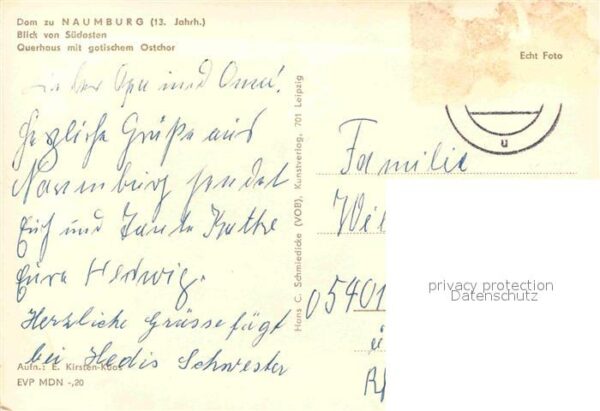 Dom zu NAUMBURG (13. Jahrh.)
Blick von Südosten
Querhaus mit gotischem Ostchor
Echt Foto
Lieber Opa und Oma!
Herzliche Grüße aus
Naumburg sendet
Euch und Tante Käthe
Eure Hedwig.
Herzliche Grüsse fügt
bei Hedis Schwester
Aufn.: E. Kirsten-
EVP MDN -,20
Hans C. Schmiedicke (VOB), Kunstverlag, 701 Leipzig
u
Familie
05401
ü
privacy protection
Datenschutz